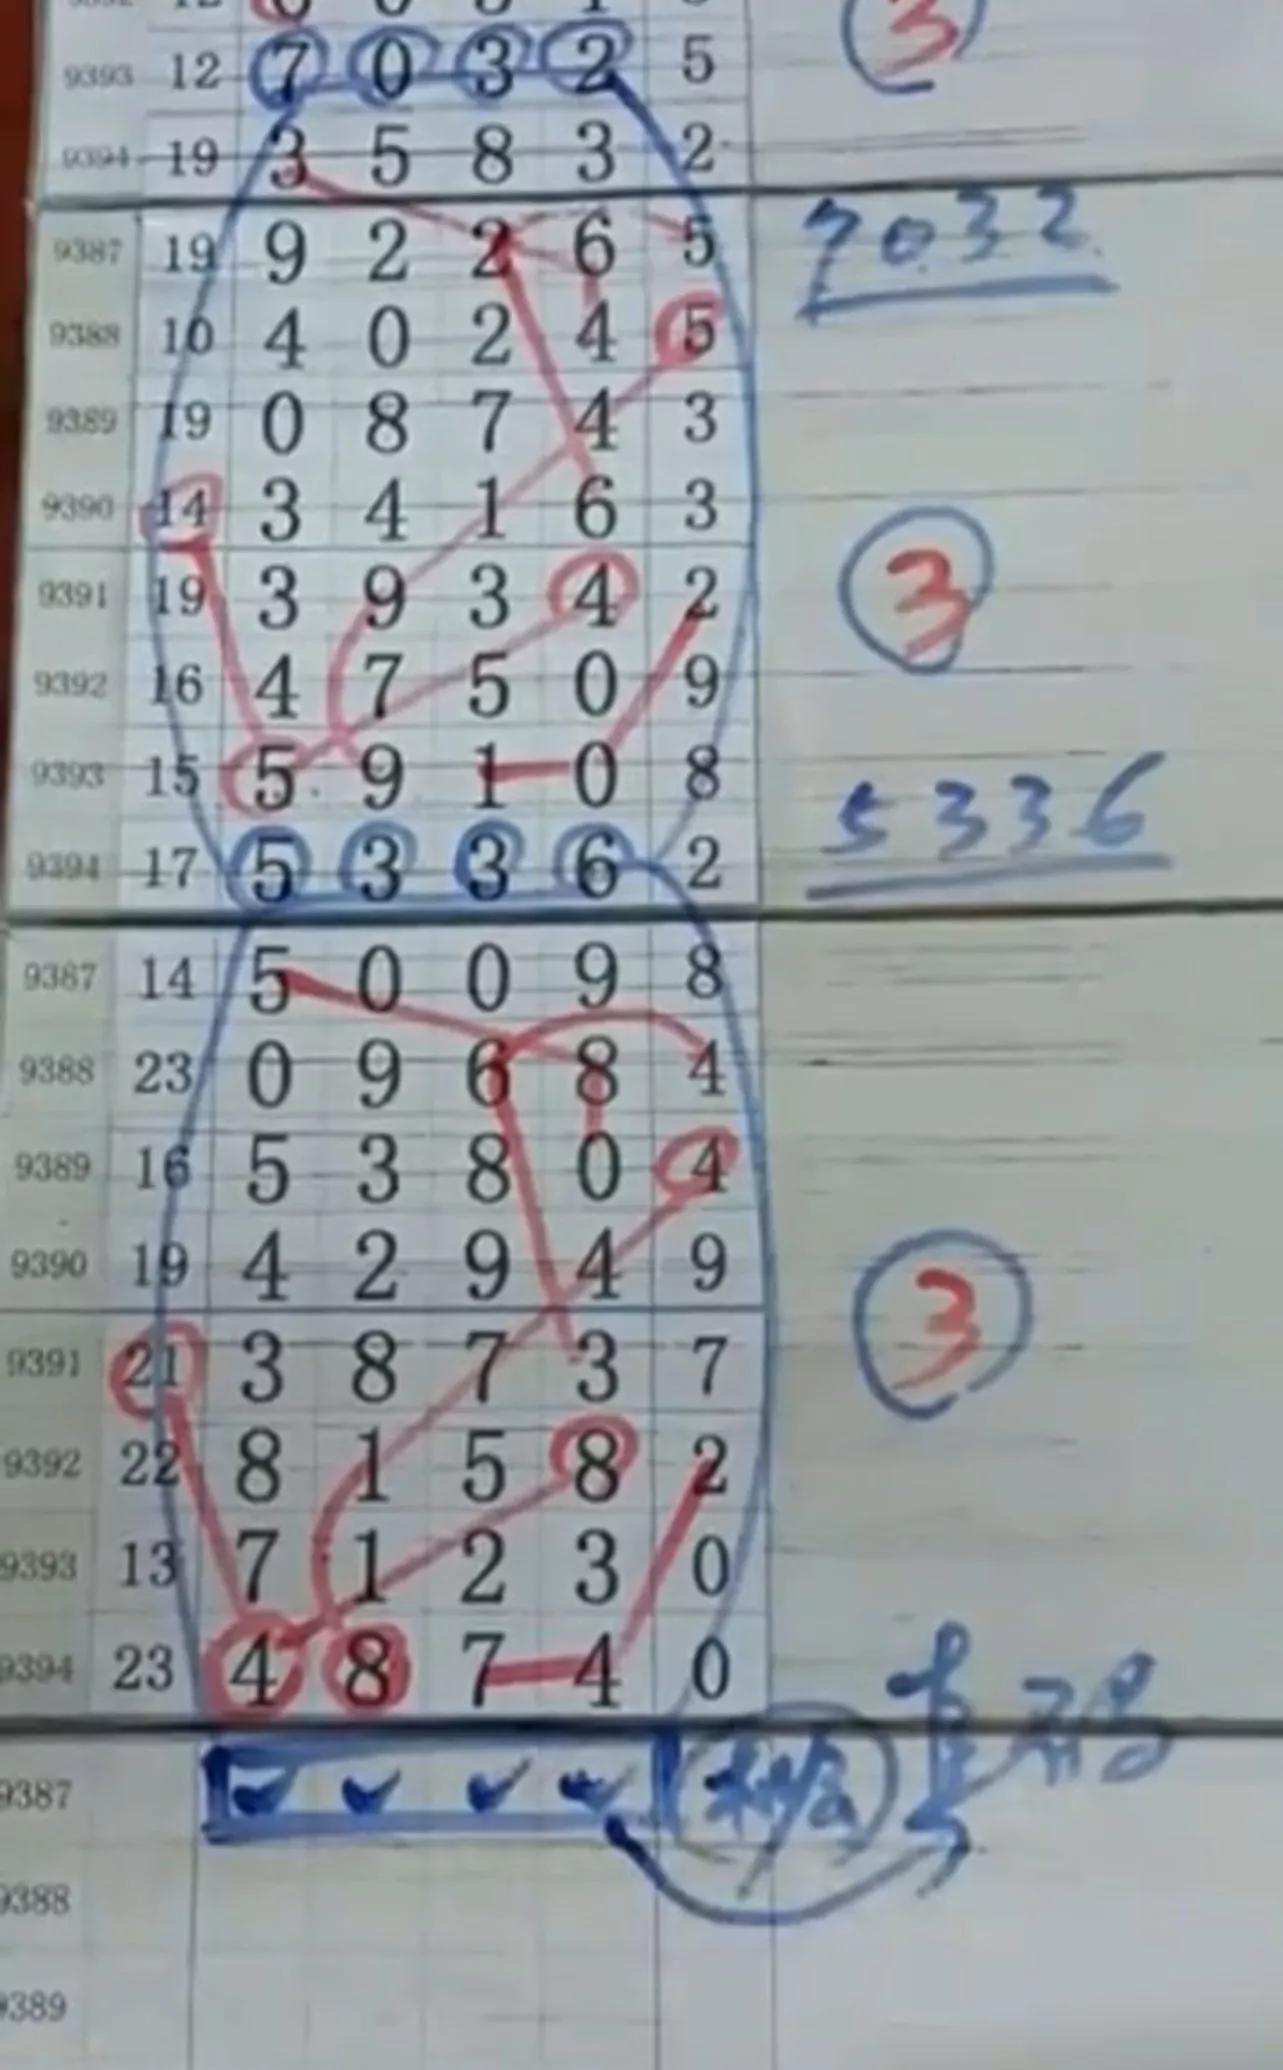 9393 12 7 0 3 2 5
9394 19 3 5 8 3 2
9387 19 9 2 2 6 5 7032
9388 10 4 0 2 4 5
9389 19 0 8 7 4 3
9390 14 3 4 1 6 3
9391 19 3 9 3 4 2 3
9392 16 4 7 5 0 9
9393 15 5 9 1 0 8 5336
9394 17 5 3 3 6 2
9387 14 5 0 0 9 8
9388 23 0 9 6 8 4
9389 16 5 3 8 0 4
9390 19 4 2 9 4 9
9391 21 3 8 7 3 7 3
9392 22 8 1 5 8 2
9393 13 7 1 2 3 0
9394 23 4 8 7 4 0
9387
9388
9389